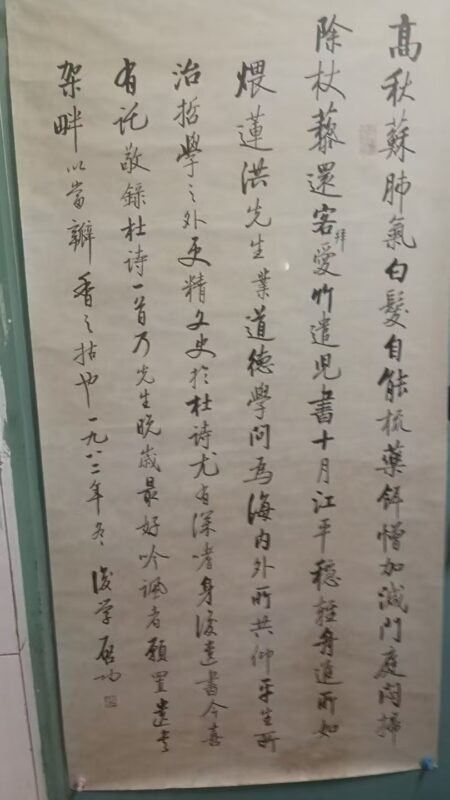 高秋蘇肺氣白髮自能梳藥餌憎加減門庭悶掃
除杖藜還客拜愛竹遣兒書十月江平穩輕舟進所如
煨蓮洪先生業道德學問爲海內外所共仰平生所
治哲學之外更精文史於杜詩尤有深嗜身後遺書今喜
有託敬錄杜詩一首乃先生晚歲最好吟諷者願置遺書
架畔以當瓣香之拈也一九八二年冬後學啟功